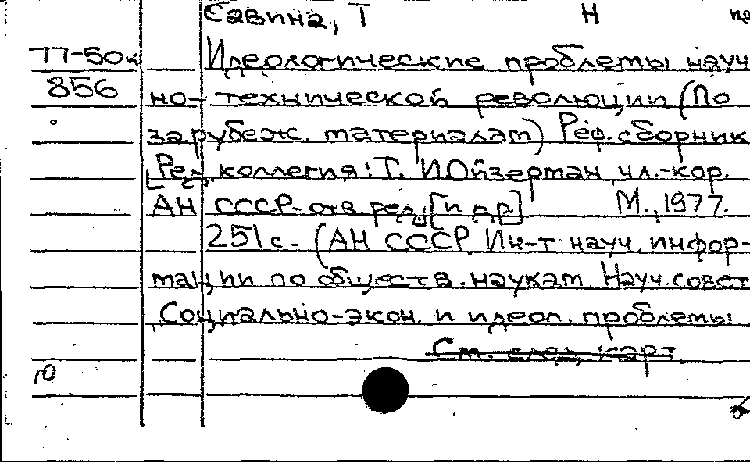 Савина, Т Н
77-50к Идеологические проблемы науч
856 но-технической революции (По
зарубеж. материалам) Реф. сборник
[Ред. коллегия: Т. И Ойзерман, чл.-кор.
АН СССР-отв ред., [и др] М., 1977.
251с. (АН СССР. Ин-т науч. инфор-
мации по обществ. наукам. Науч. совет
„Социально-экон. и идеол. проблемы
См. след. карт
10